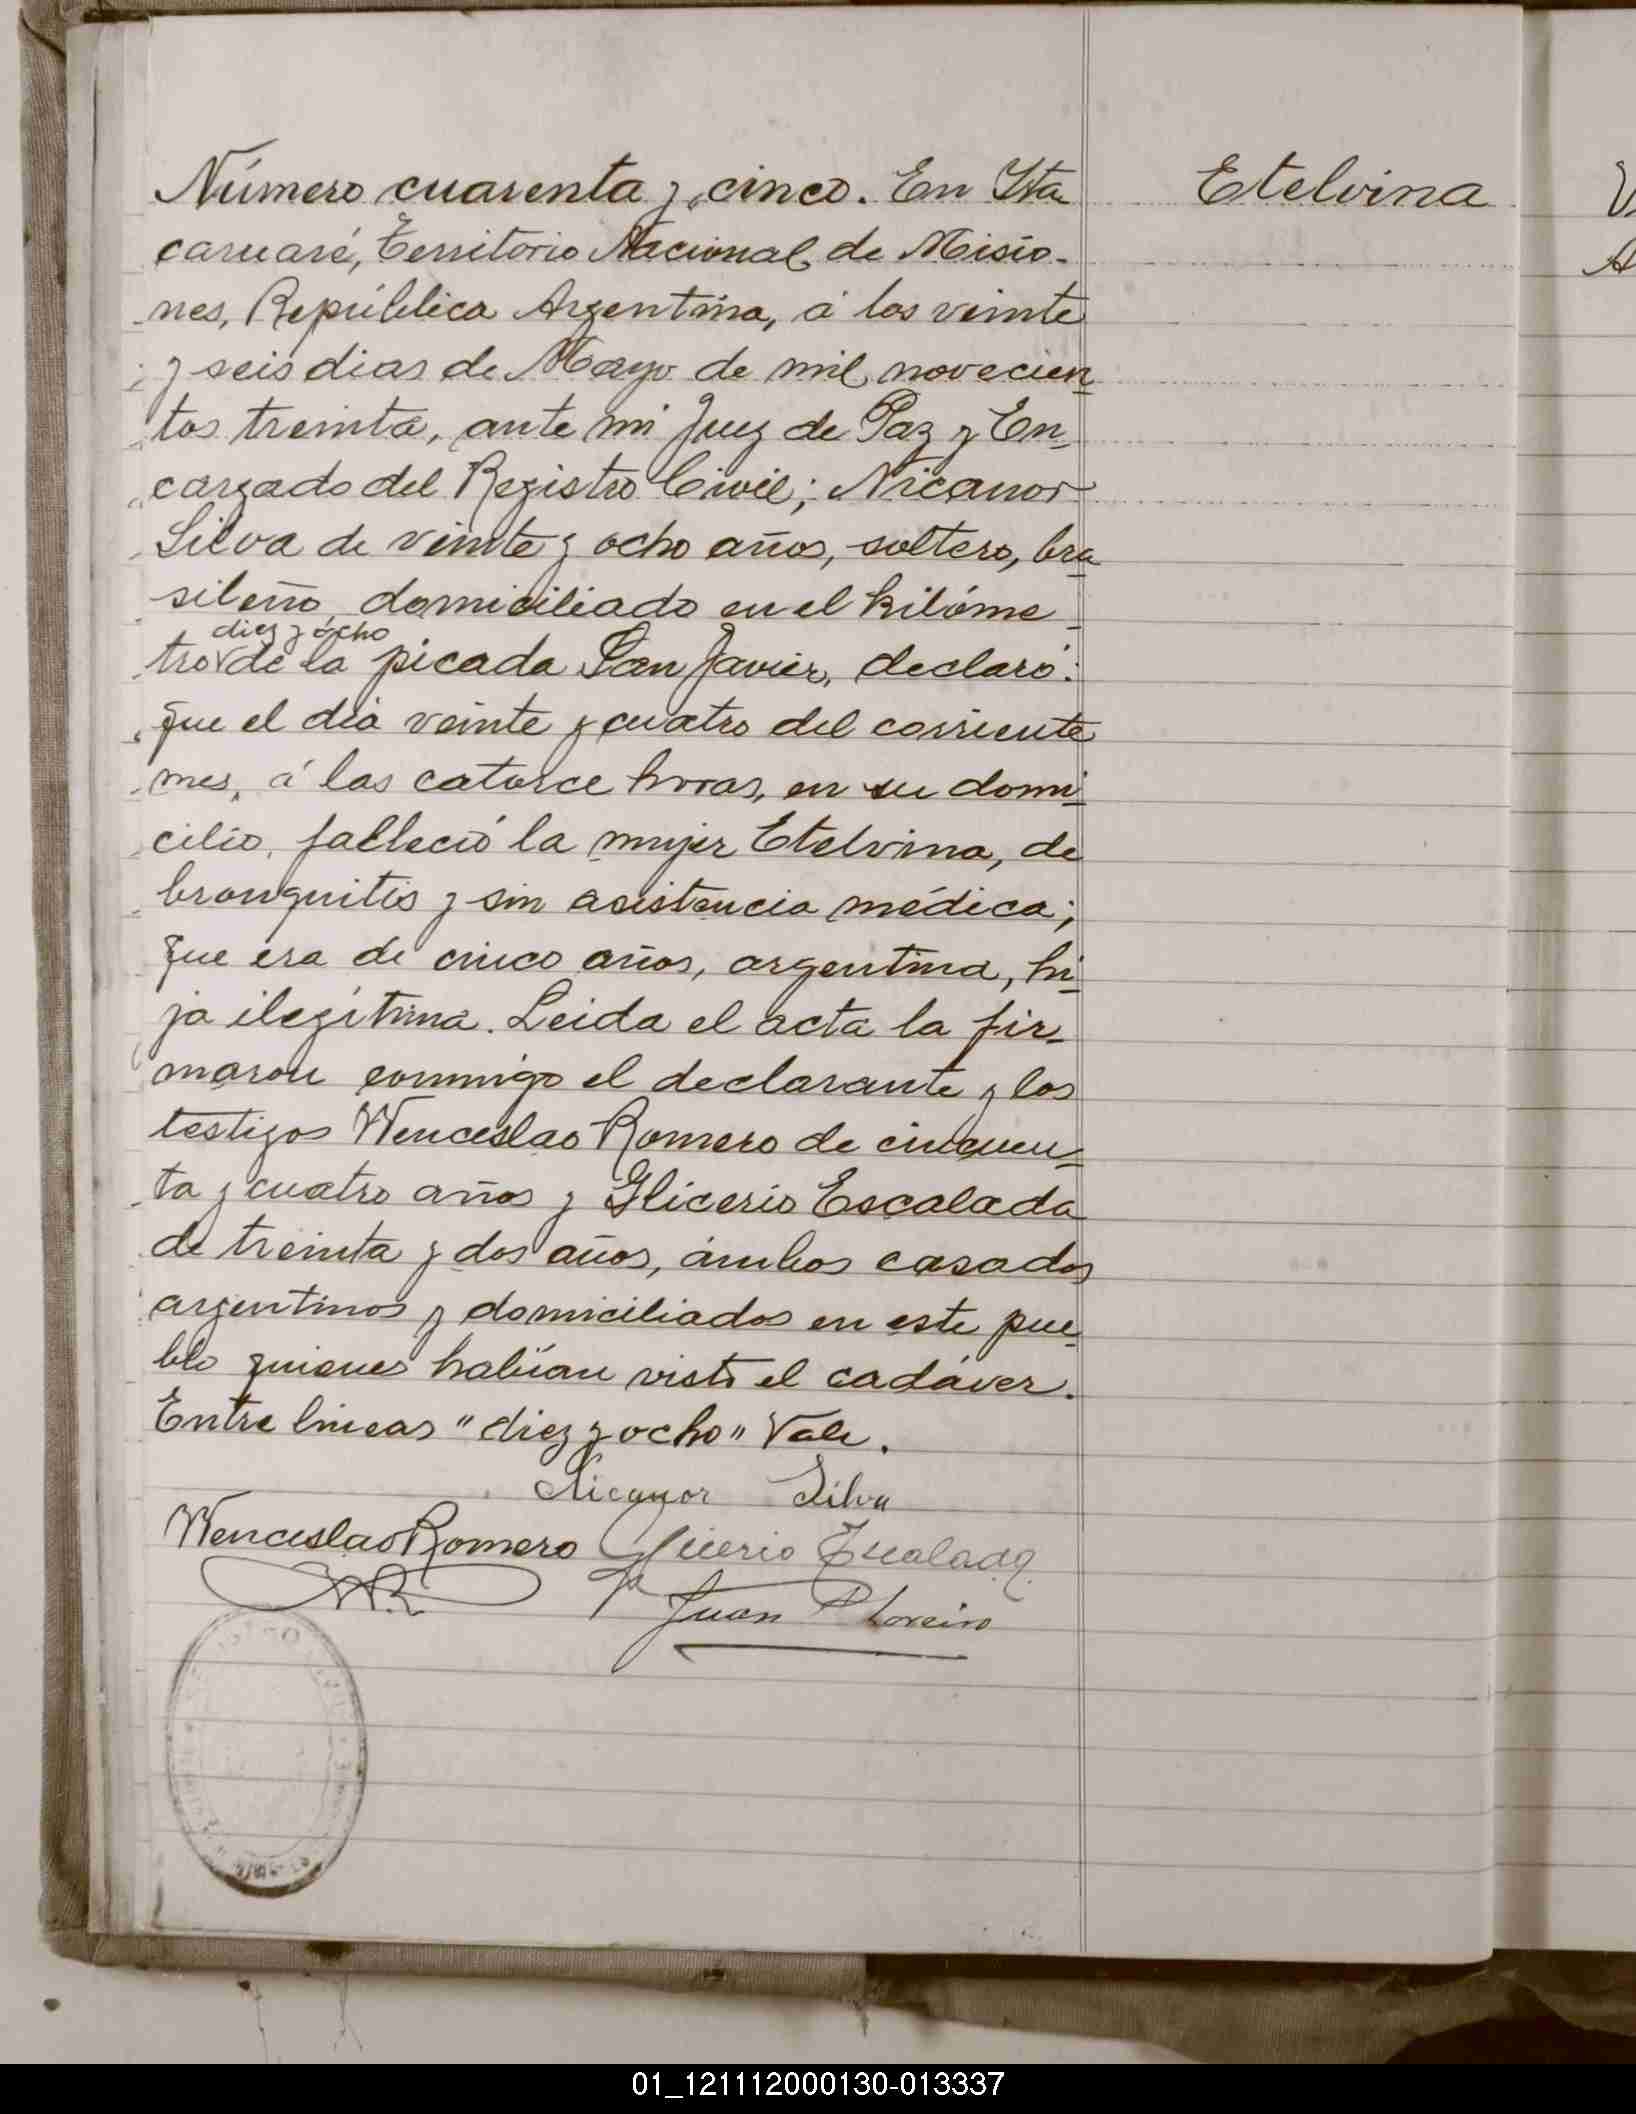 Número cuarenta y cinco. En Ita
caruaré, Territorio Nacional de Misio-
nes, República Argentina, á los veinte
y seis dias de Mayo de mil novecien-
tos treinta, ante mi Juez de Paz y En-
cargado del Registro Civil; Nicanor
Silva de veinte y ocho años, soltero, bra
sileño domiciliado en el kilóme-
diez y ocho
tro de la picada San Javier, declaró:
que el dia veinte y cuatro del corriente
mes, á las catorce horas, en su domi-
cilio, falleció la mujer Etelvina, de
bronquitis y sin asistencia médica;
que era de cinco años, argentina, hi-
ja ilegítima. Leida el acta la fir-
maron conmigo el declarante y los
testigos Wenceslao Romero de cincuen-
ta y cuatro años y Glicerio Escalada
de treinta y dos años, ámbos casados
argentinos y domiciliados en este pue-
blo quienes habían visto el cadáver.
Entre lineas "diez y ocho" Vale.
Nicanor Silva
Wenceslao Romero Glicerio Escalada
WR
Juan
Etelvina
01_121112000130-013337